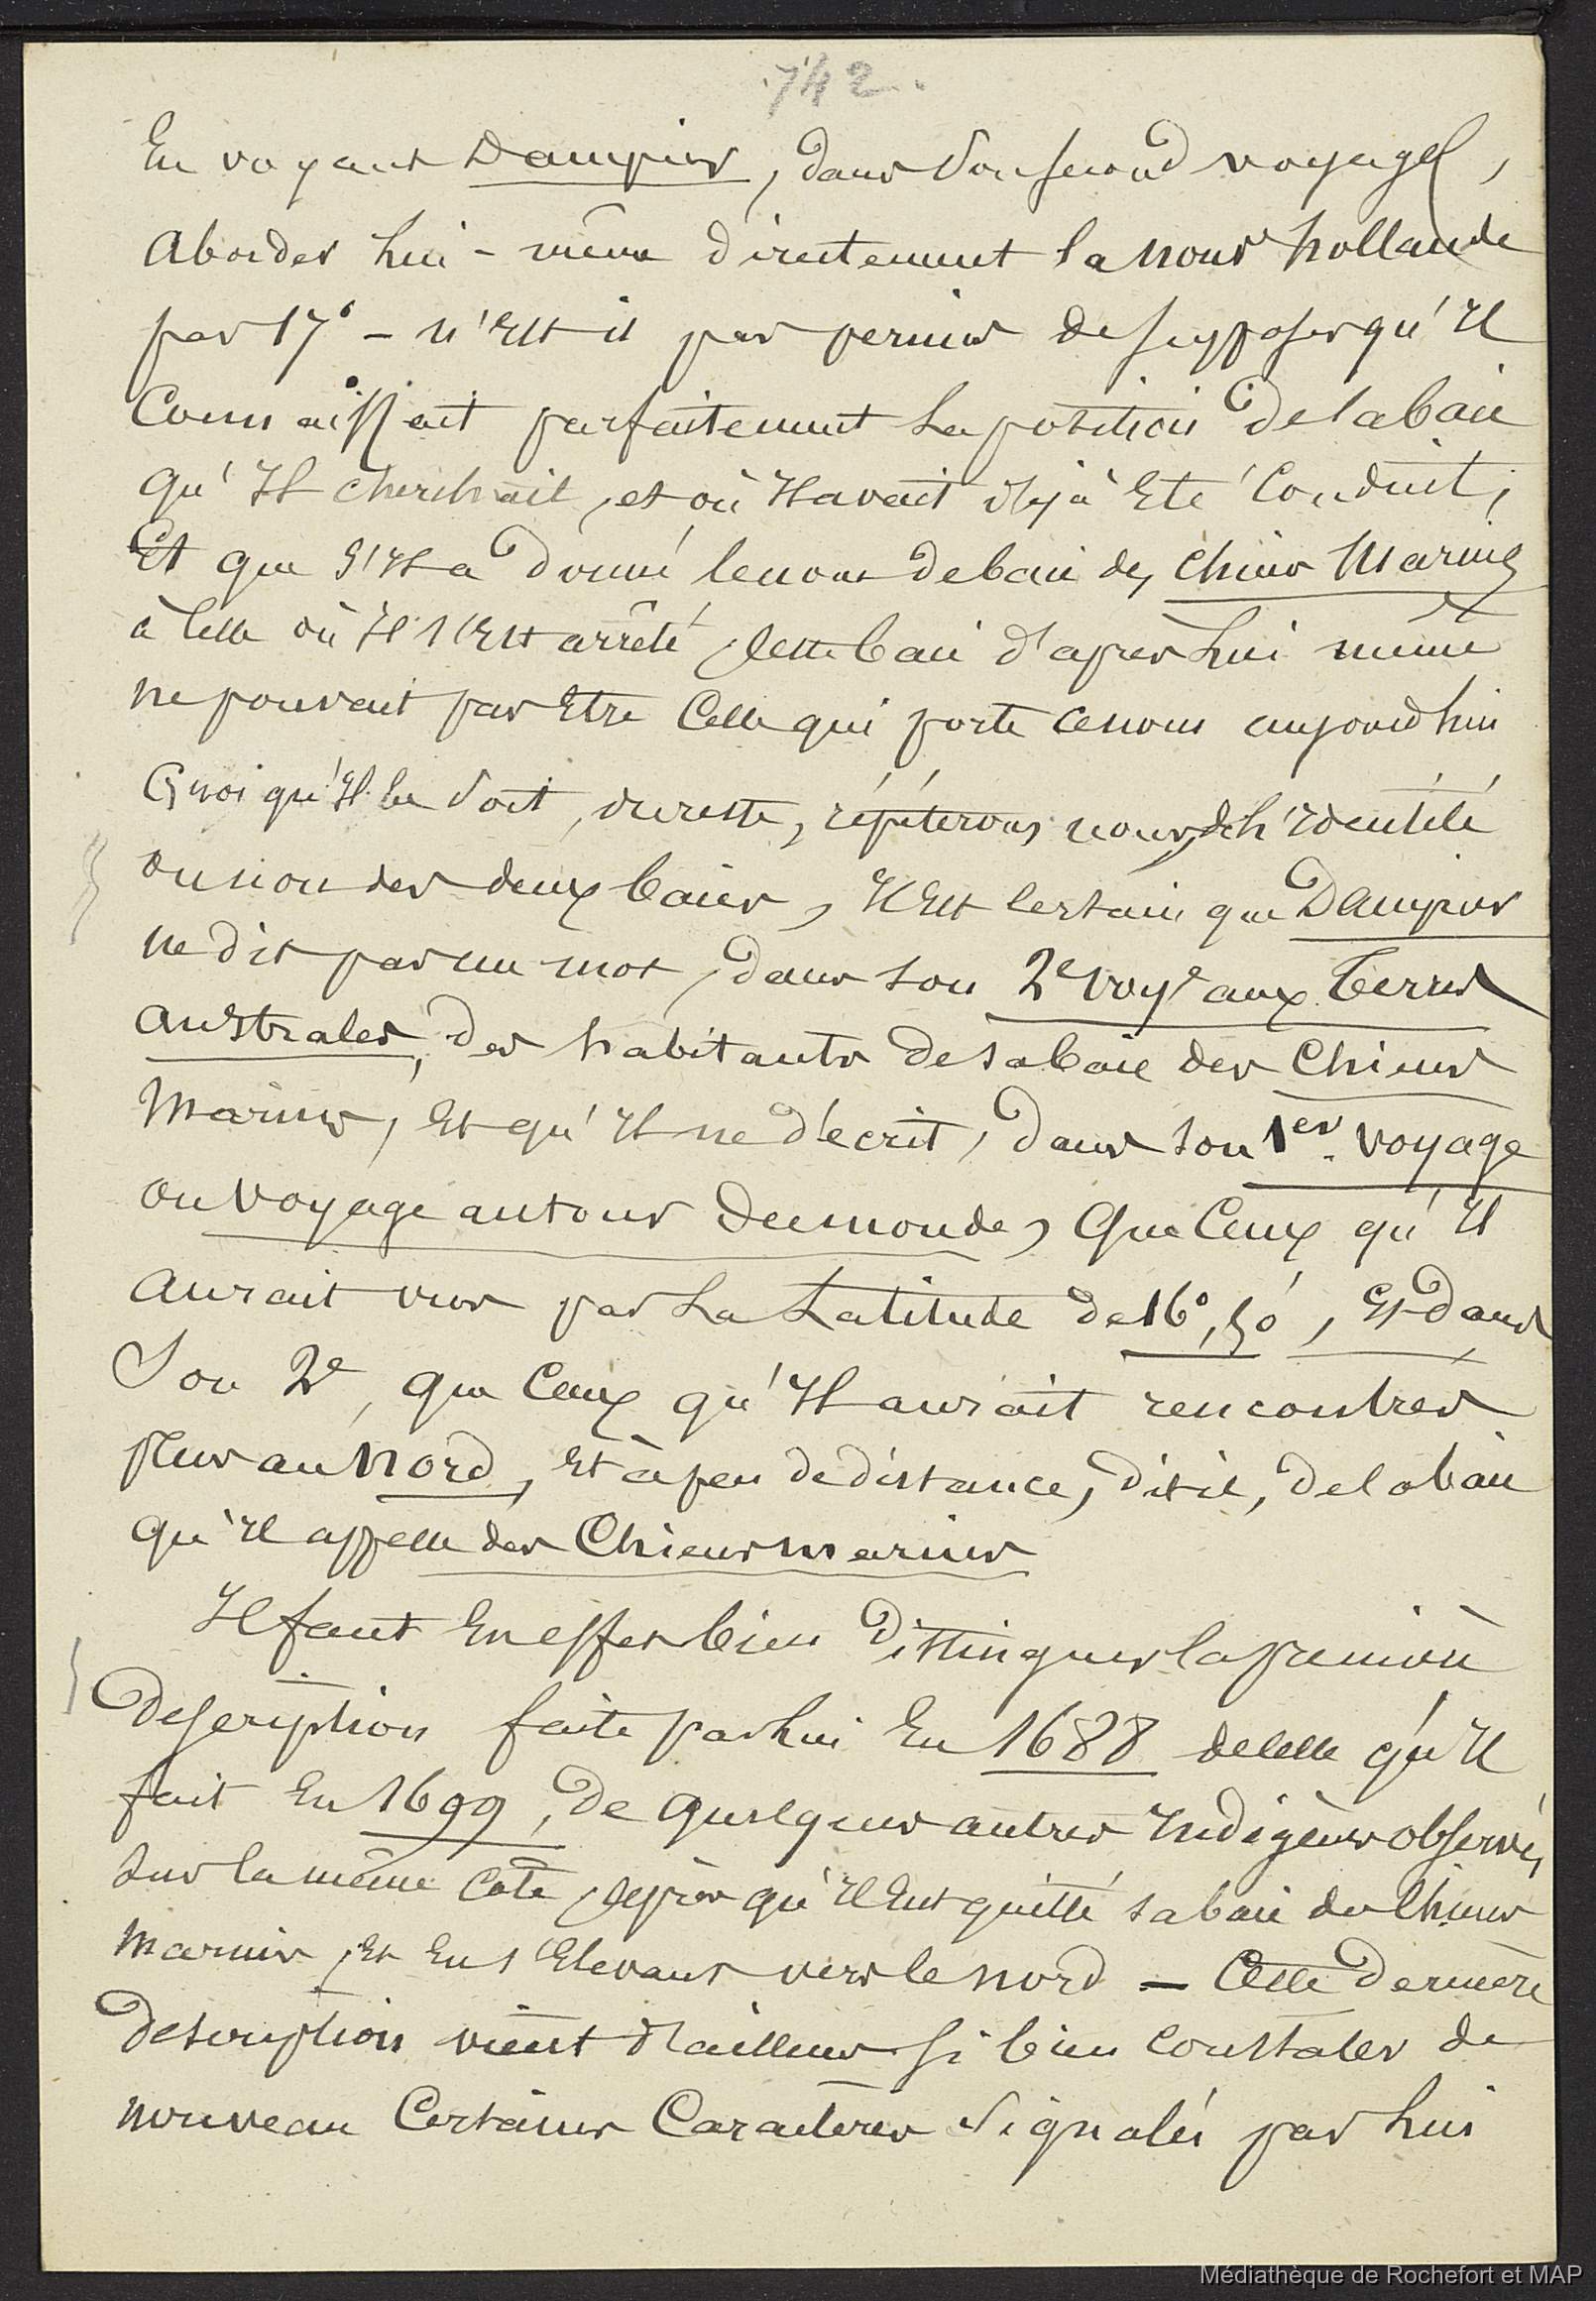 742.
En voyant Dampier, dans son second voyage,
aborder lui-même directement la nouv.e hollande
par 17° – n'est il pas permis de supposer qu'il
connaissait parfaitement la position de la baie
qu'il cherchait, et où il avait déjà été conduit;
Et que s'il a donné le nom de baie des chiens marins
à celle où il s'est arrêté, cette baie d'après lui même
ne pouvait pas être celle qui porte ce nom aujourd'hui
Quoi qu'il en soit, du reste, répéterons nous, de l'identité
ou non des deux baies, il est certain que Dampier
ne dit pas un mot, dans son 2e voy.e aux terres
australes, des habitants de sa baie des Chiens
Marins, et qu'il ne décrit, dans son 1er voyage
ou voyage autour du monde, que ceux qu'il
aurait vus par la Latitude de 16°,50', et dans
son 2e, que ceux qu'il aurait rencontrés
plus au nord, et à peu de distance, dit il, de la baie
qu'il appelle des Chiens marins
Il faut en effet bien distinguer la première
description faite par lui en 1688 de celle qu'il
fait en 1699, de quelques autres indigènes observés
sur la même côte, après qu'il eut quitté sa baie des chiens
marins, et en s'élevant vers le nord – Cette dernière
description vient d'ailleurs si bien constater de
nouveau certains caractères signalés par lui
Médiathèque de Rochefort et MAP